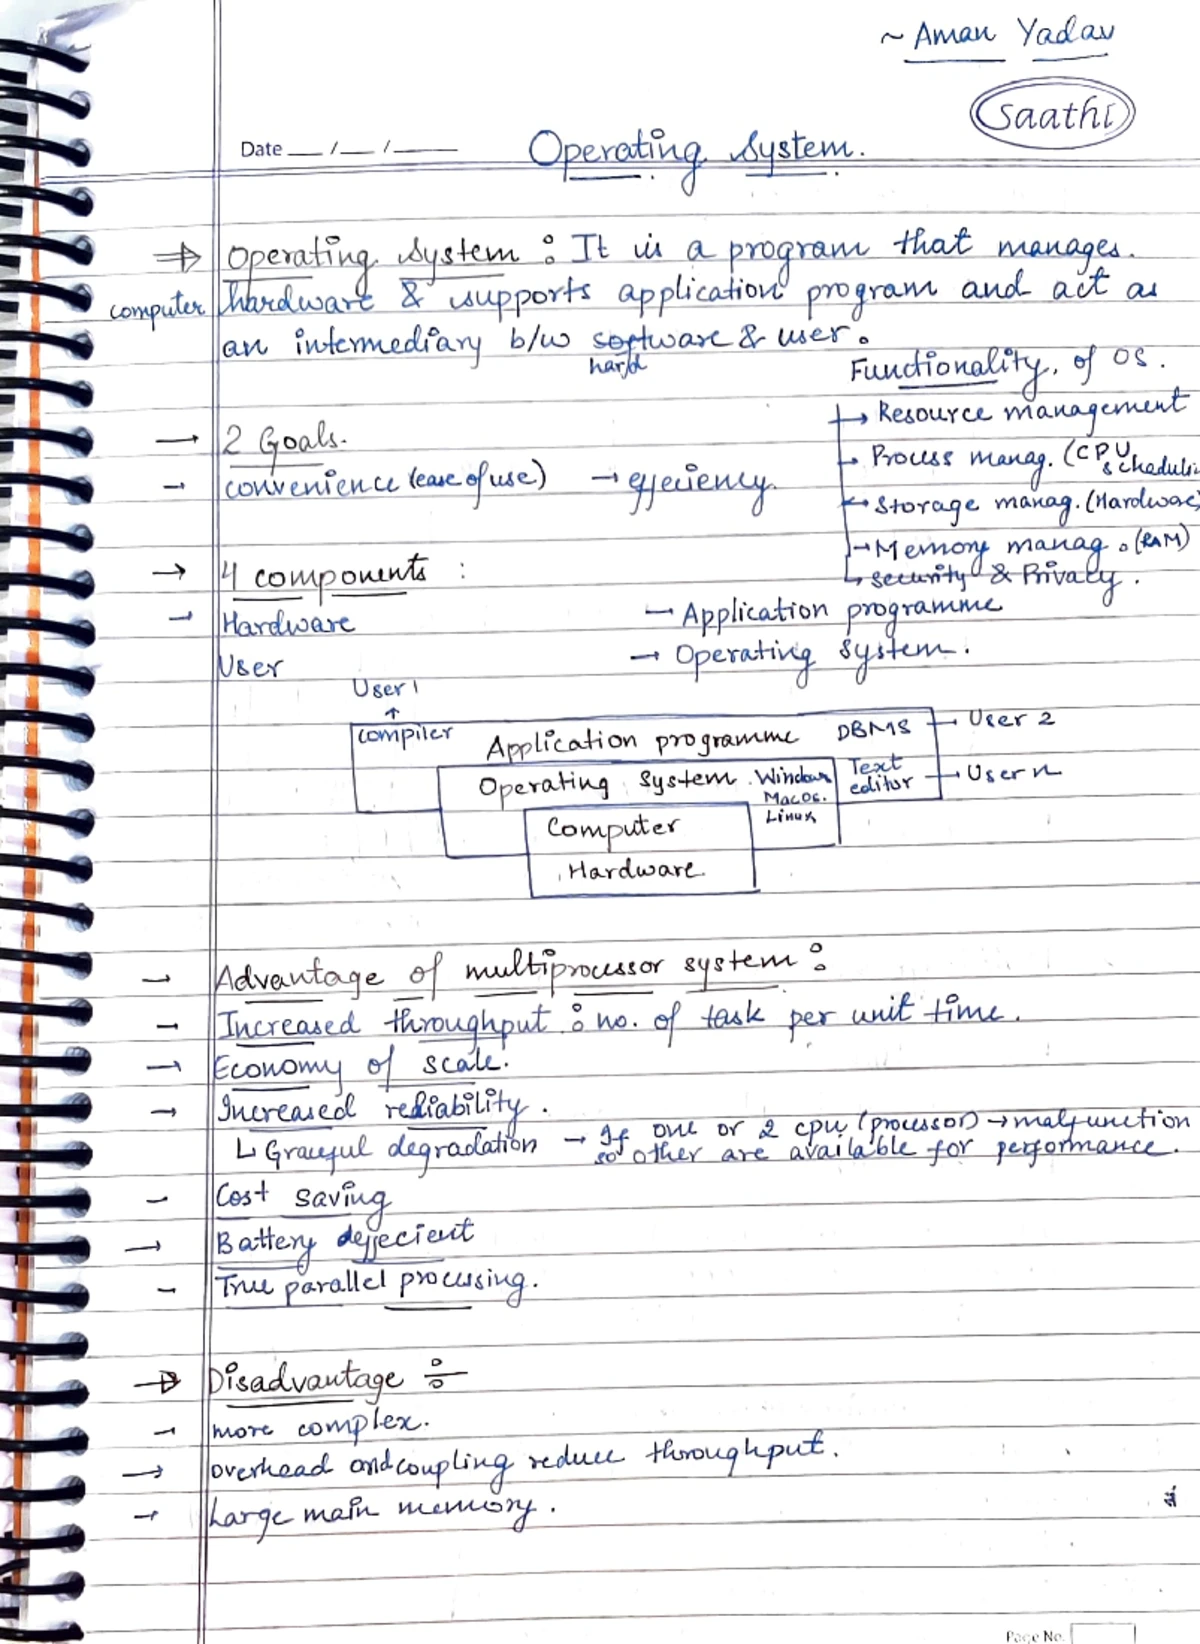 ~ Aman Yadav
Saathi
Date __ / __ / ____
Operating System.
⇒ Operating System : It is a program that manages.
computer hardware & supports application program and act as
an intermediary b/w software & user.
hard
Functionality of OS.
→ Resource management
→ 2 Goals.
→ Process manag. (CPU
schaduli
→ convenience (ease of use) → effeciency.
→ Storage manag. (Hardware)
→ Memory manag. (RAM)
→ 4 components :
↳ security & Privacy.
→ Hardware → Application programme
User → Operating System.
User 1
↑
compiler Application programme DBMS → User 2
Operating System. Windows Text
editor → User n
MacOS.
Linux
Computer
Hardware
→ Advantage of multiprocessor system :
→ Increased throughput : no. of task per unit time.
→ Economy of scale.
→ Increased rediability.
↳ Graceful degradation → If one or 2 cpu (processor) → malfunction
so other are available for performance.
- Cost saving
→ Battery deffecient
- True parallel processing.
⇒ Disadvantage ÷
→ more complex.
→ overhead and coupling reduce throughput.
→ Large main memory.
Page No.